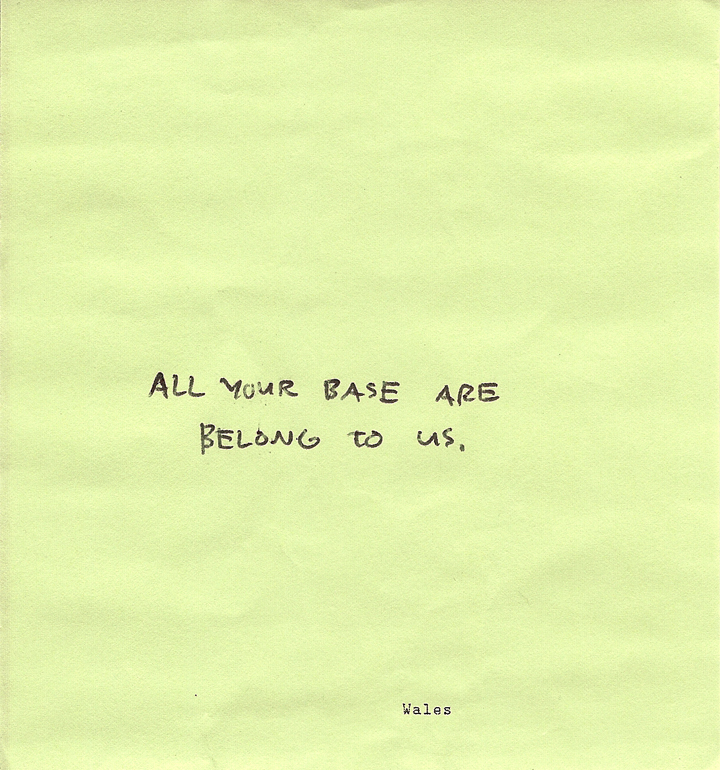 ALL YOUR BASE ARE
BELONG TO US.
Wales